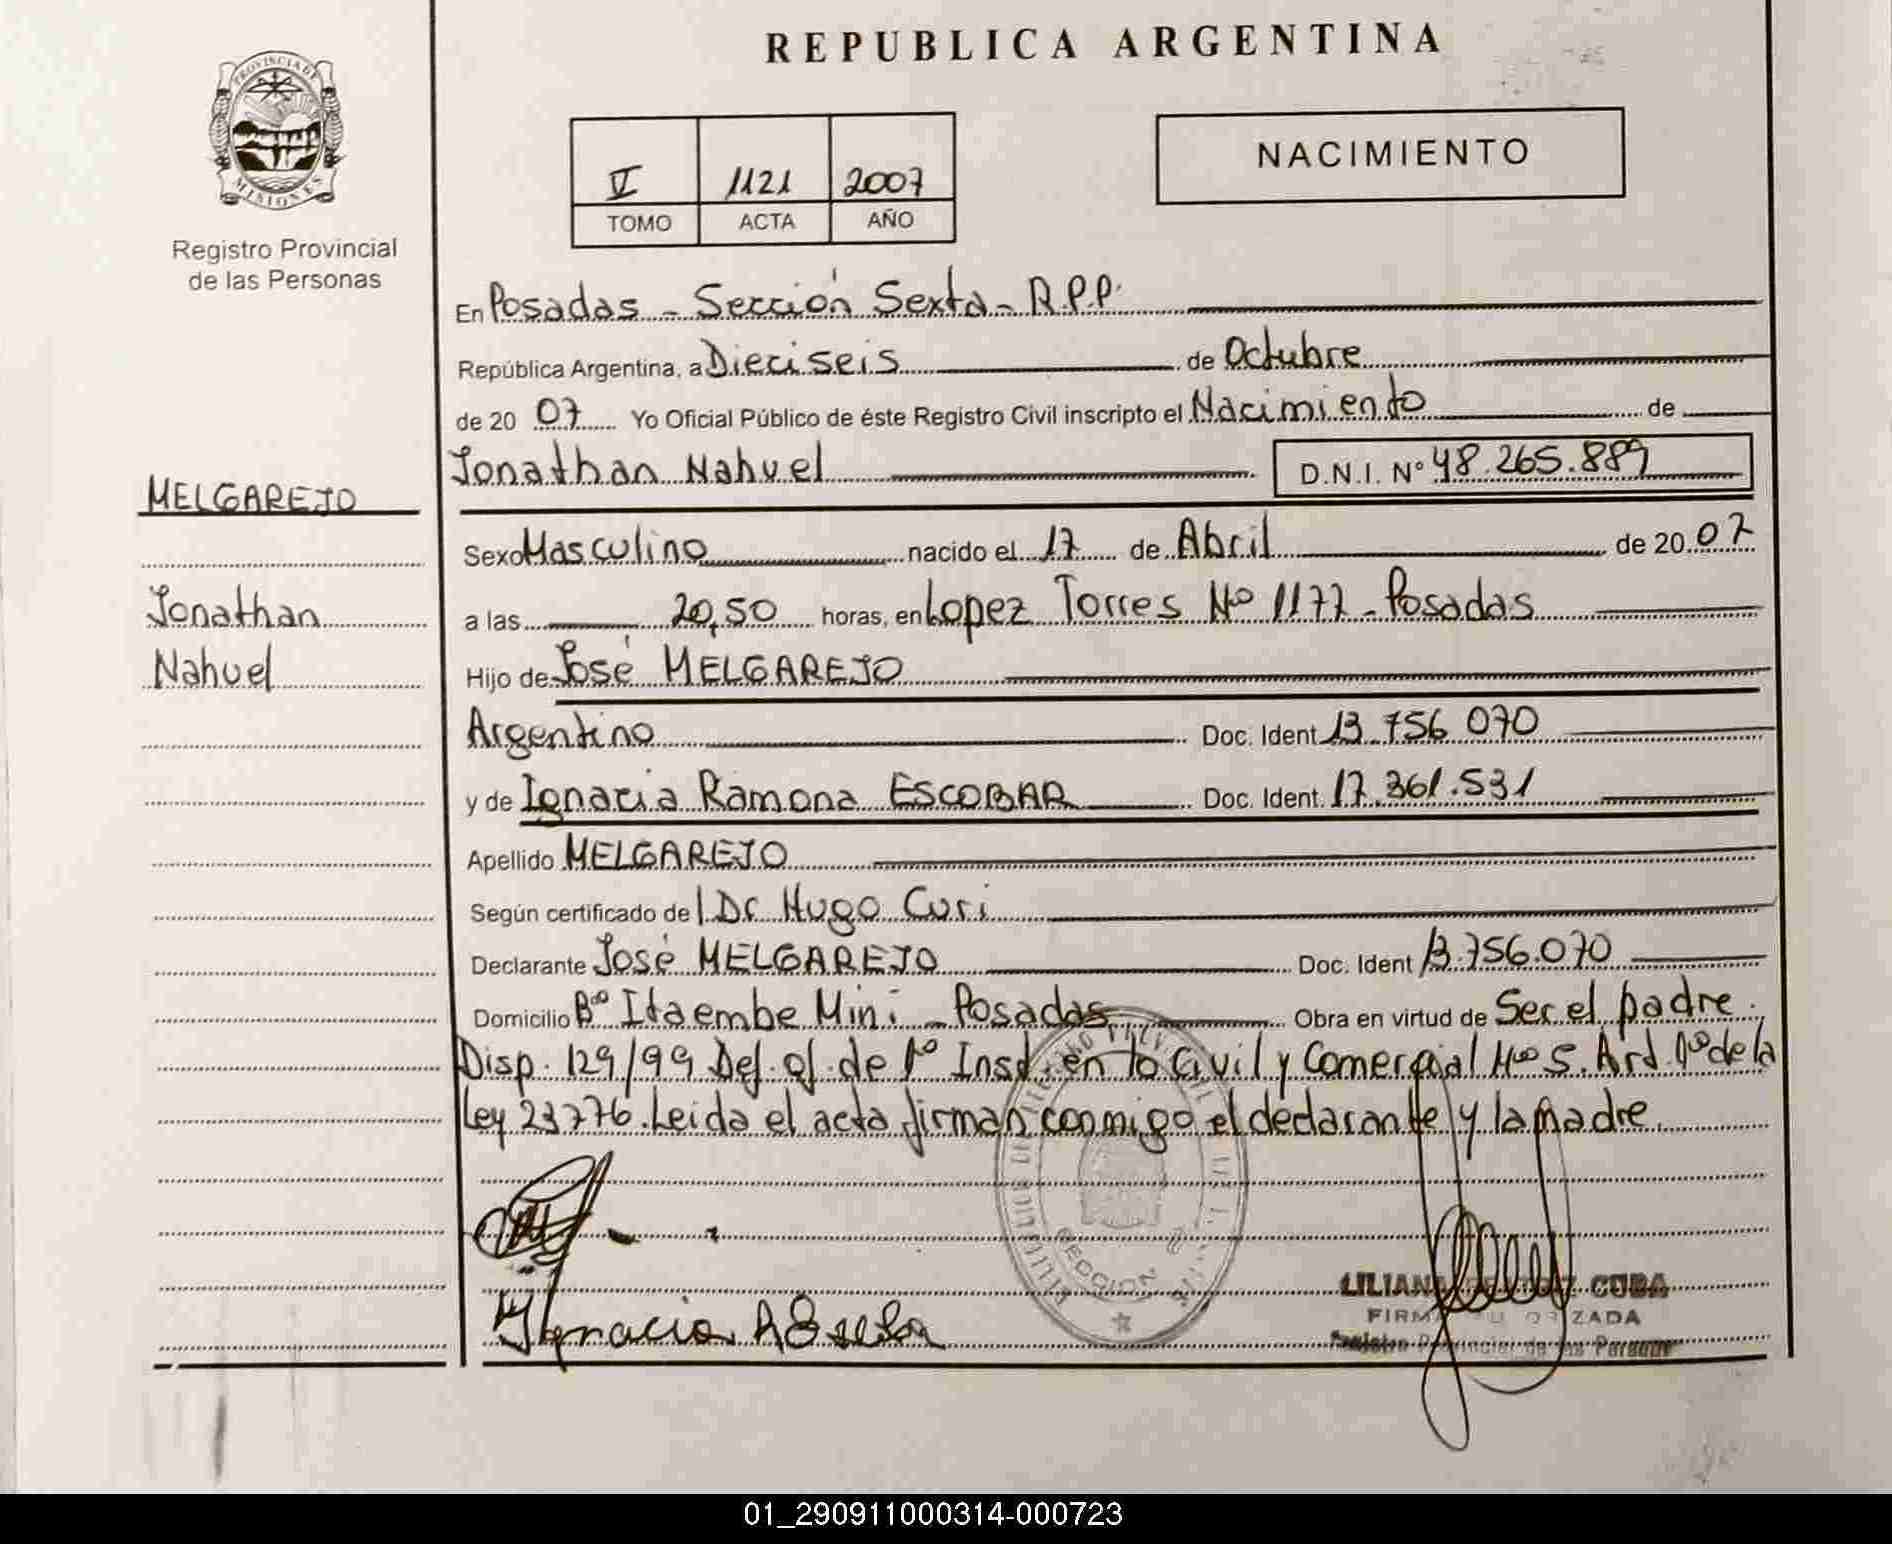 REPUBLICA ARGENTINA
PROVINCIA DE MISIONES
Registro Provincial
de las Personas
V 1121 2007
TOMO ACTA AÑO
NACIMIENTO
En Posadas - Sección Sexta - R.P.P.
República Argentina, a Dieciseis de Octubre
de 20 07 Yo Oficial Público de éste Registro Civil inscripto el Nacimiento de
Jonathan Nahuel D.N.I. Nº 48.265.889
MELGAREJO
Jonathan
Nahuel
Sexo Masculino nacido el 17 de Abril de 20 07
a las 20,50 horas, en Lopez Torres Nº 1177 - Posadas
Hijo de José MELGAREJO
Argentino Doc. Ident 13.756.070
y de Ignacia Ramona ESCOBAR Doc. Ident. 17.361.531
Apellido MELGAREJO
Según certificado de l Dr Hugo Curi
Declarante José MELGAREJO Doc. Ident 13.756.070
Domicilio Bº Itaembe Mini - Posadas Obra en virtud de Ser el padre.
Disp. 129/99 Def. of. de 1º Inst. en lo Civil y Comercial Nº 5. Art. 1º de la
Ley 23776. Leida el acta firman conmigo el declarante y la Madre.
SECCION
LILIANA CUBA
FIRMA
Registro Provincial de las Personas
01_290911000314-000723